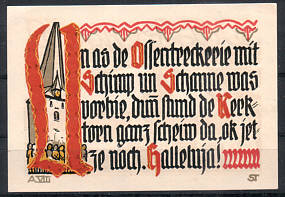 Un as de Ossentreckerie mit
Schimp un Schanne was
vorbie, dun̄ stund de Kerk=
torn ganz scheew da, ok jet=
ze noch. Halleluja!
ST